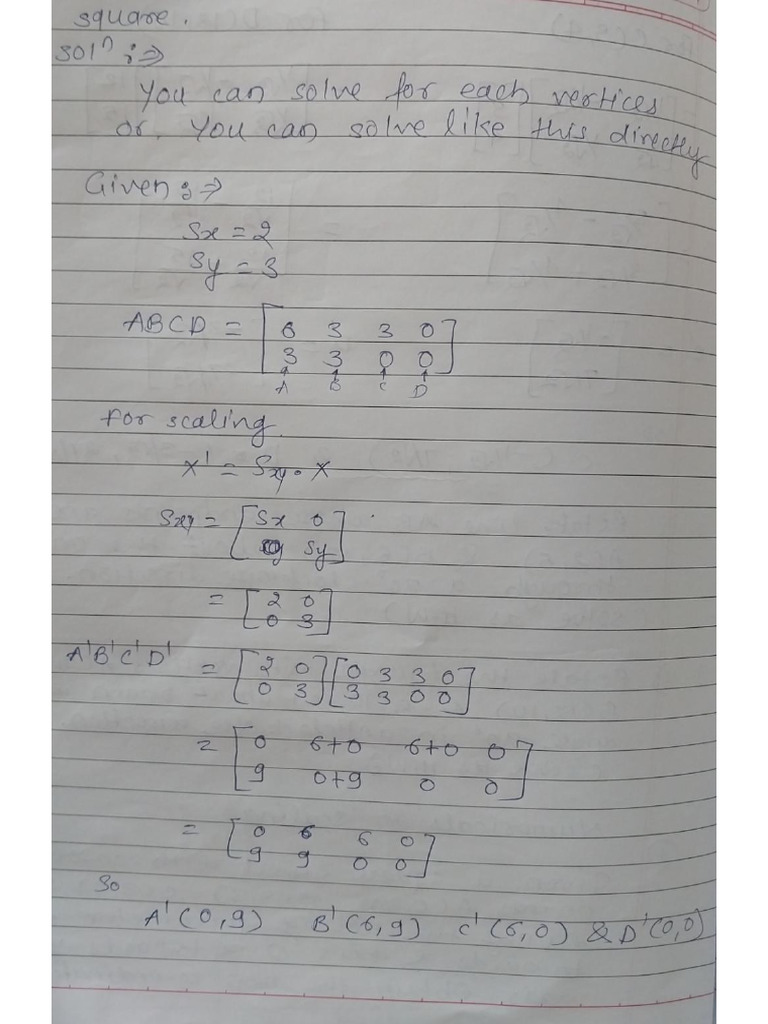 square.
solⁿ :⇒
You can solve for each vertices
or, you can solve like this directly
Given :⇒
Sx = 2
Sy = 3
ABCD = [6 3 3 0
3 3 0 0]
A B C D
for scaling
x' = Sxy . x
Sxy = [Sx 0
0 Sy]
= [2 0
0 3]
A'B'C'D' = [2 0 [0 3 3 0
0 3] 3 3 0 0]
= [0 6+0 6+0 0
9 0+9 0 0]
= [0 6 6 0
9 9 0 0]
So
A'(0,9) B'(6,9) C'(6,0) & D'(0,0)